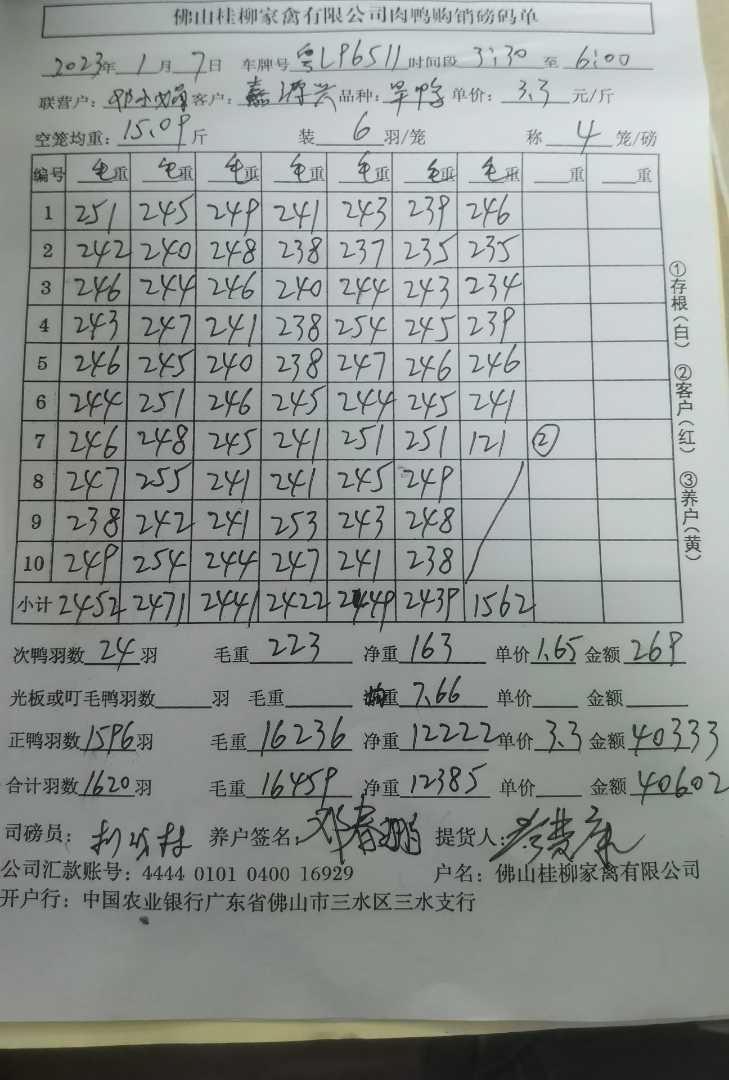 佛山桂柳家禽有限公司肉鸭购销磅码单
2023年 1月 7日 车牌号 粤LP6511 时间段 3:30 至 6:00
联营户: 客户: 鑫源兴 品种: 单价: 3.3 元/斤
空笼均重: 15.09 斤 装 6 羽/笼 称 4 笼/磅
编号 毛重 毛重 毛重 毛重 毛重 毛重 毛重 重 重
1 251 245 249 241 243 239 246
2 242 240 248 238 237 235 235
3 246 244 246 240 244 243 234
4 243 247 241 238 254 245 239
5 246 245 240 238 247 246 246
6 244 251 246 245 244 245 241
7 246 248 245 241 251 251 121 ②
8 247 255 241 241 245 249
9 238 242 241 253 243 248
10 249 254 244 247 241 238
小计 2452 2471 2441 2422 2449 2439 1562
次鸭羽数 24 羽 毛重 223 净重 163 单价 1.65 金额 269
光板或叮毛鸭羽数 羽 毛重 重 7.66 单价 金额
正鸭羽数 1596 羽 毛重 16236 净重 12222 单价 3.3 金额 40333
合计羽数 1620 羽 毛重 16459 净重 12385 单价 金额 40602
司磅员: 养户签名: 邓春鹏 提货人:
公司汇款账号: 4444 0101 0400 16929 户名: 佛山桂柳家禽有限公司
开户行: 中国农业银行广东省佛山市三水区三水支行
①存根(白) ②客户(红) ③养户(黄)